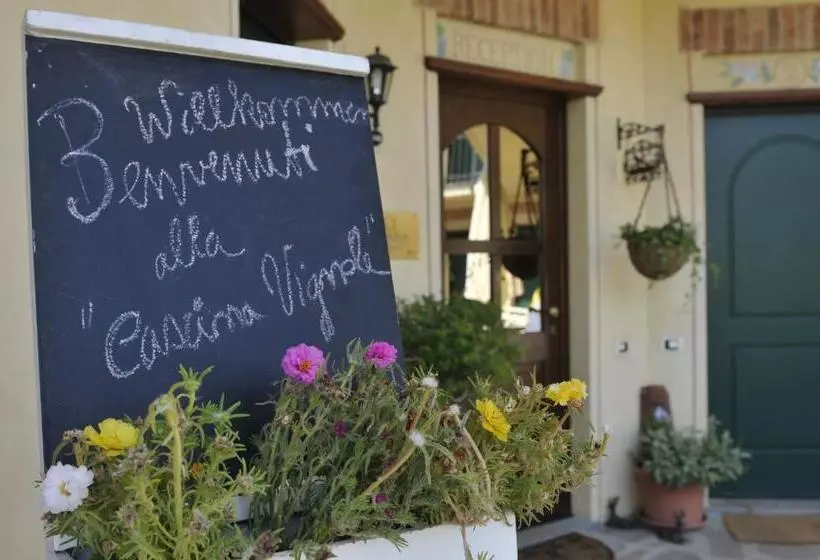 RECEPTION
Willkommen
Benvenuti
alla
"Cascina Vignole"